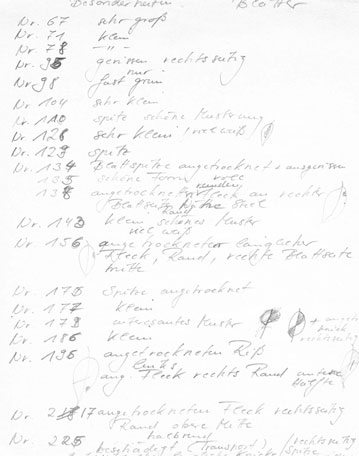 Besonderheiten Blätter
Nr. 67 sehr groß
Nr. 71 klein
Nr. 78 -"-
Nr. 95 gerissen rechtsseitig
Nr. 98 nur fast grün
Nr. 104 sehr klein
Nr. 110 spitz schöne Musterung
Nr. 126 sehr klein / viel weiß /
Nr. 129 spitz
Nr. 134 Blattspitze angetrocknet + ausgerissen
135 schöne Form
138 angetrockneter Fleck an rechter
Blattseite Stiel
Rand
Nr. 143 klein schönes Muster
viel weiß
Nr. 156 angetrockneter länglicher
Fleck, Rand, rechte Blattseite
mitte
Nr. 170 Spitze angetrocknet
Nr. 177 klein
Nr. 179 interessantes Muster
rechtsseitig
Nr. 186 klein
Nr. 196 angetrockneten Riß
links
ang. Fleck rechts Rand untere
Hälfte
Nr. 217 angetrockneten Fleck rechtsseitig
Rand obere Mitte
halbrund
Nr. 225 beschädigt (Transport) / rechtsseitig